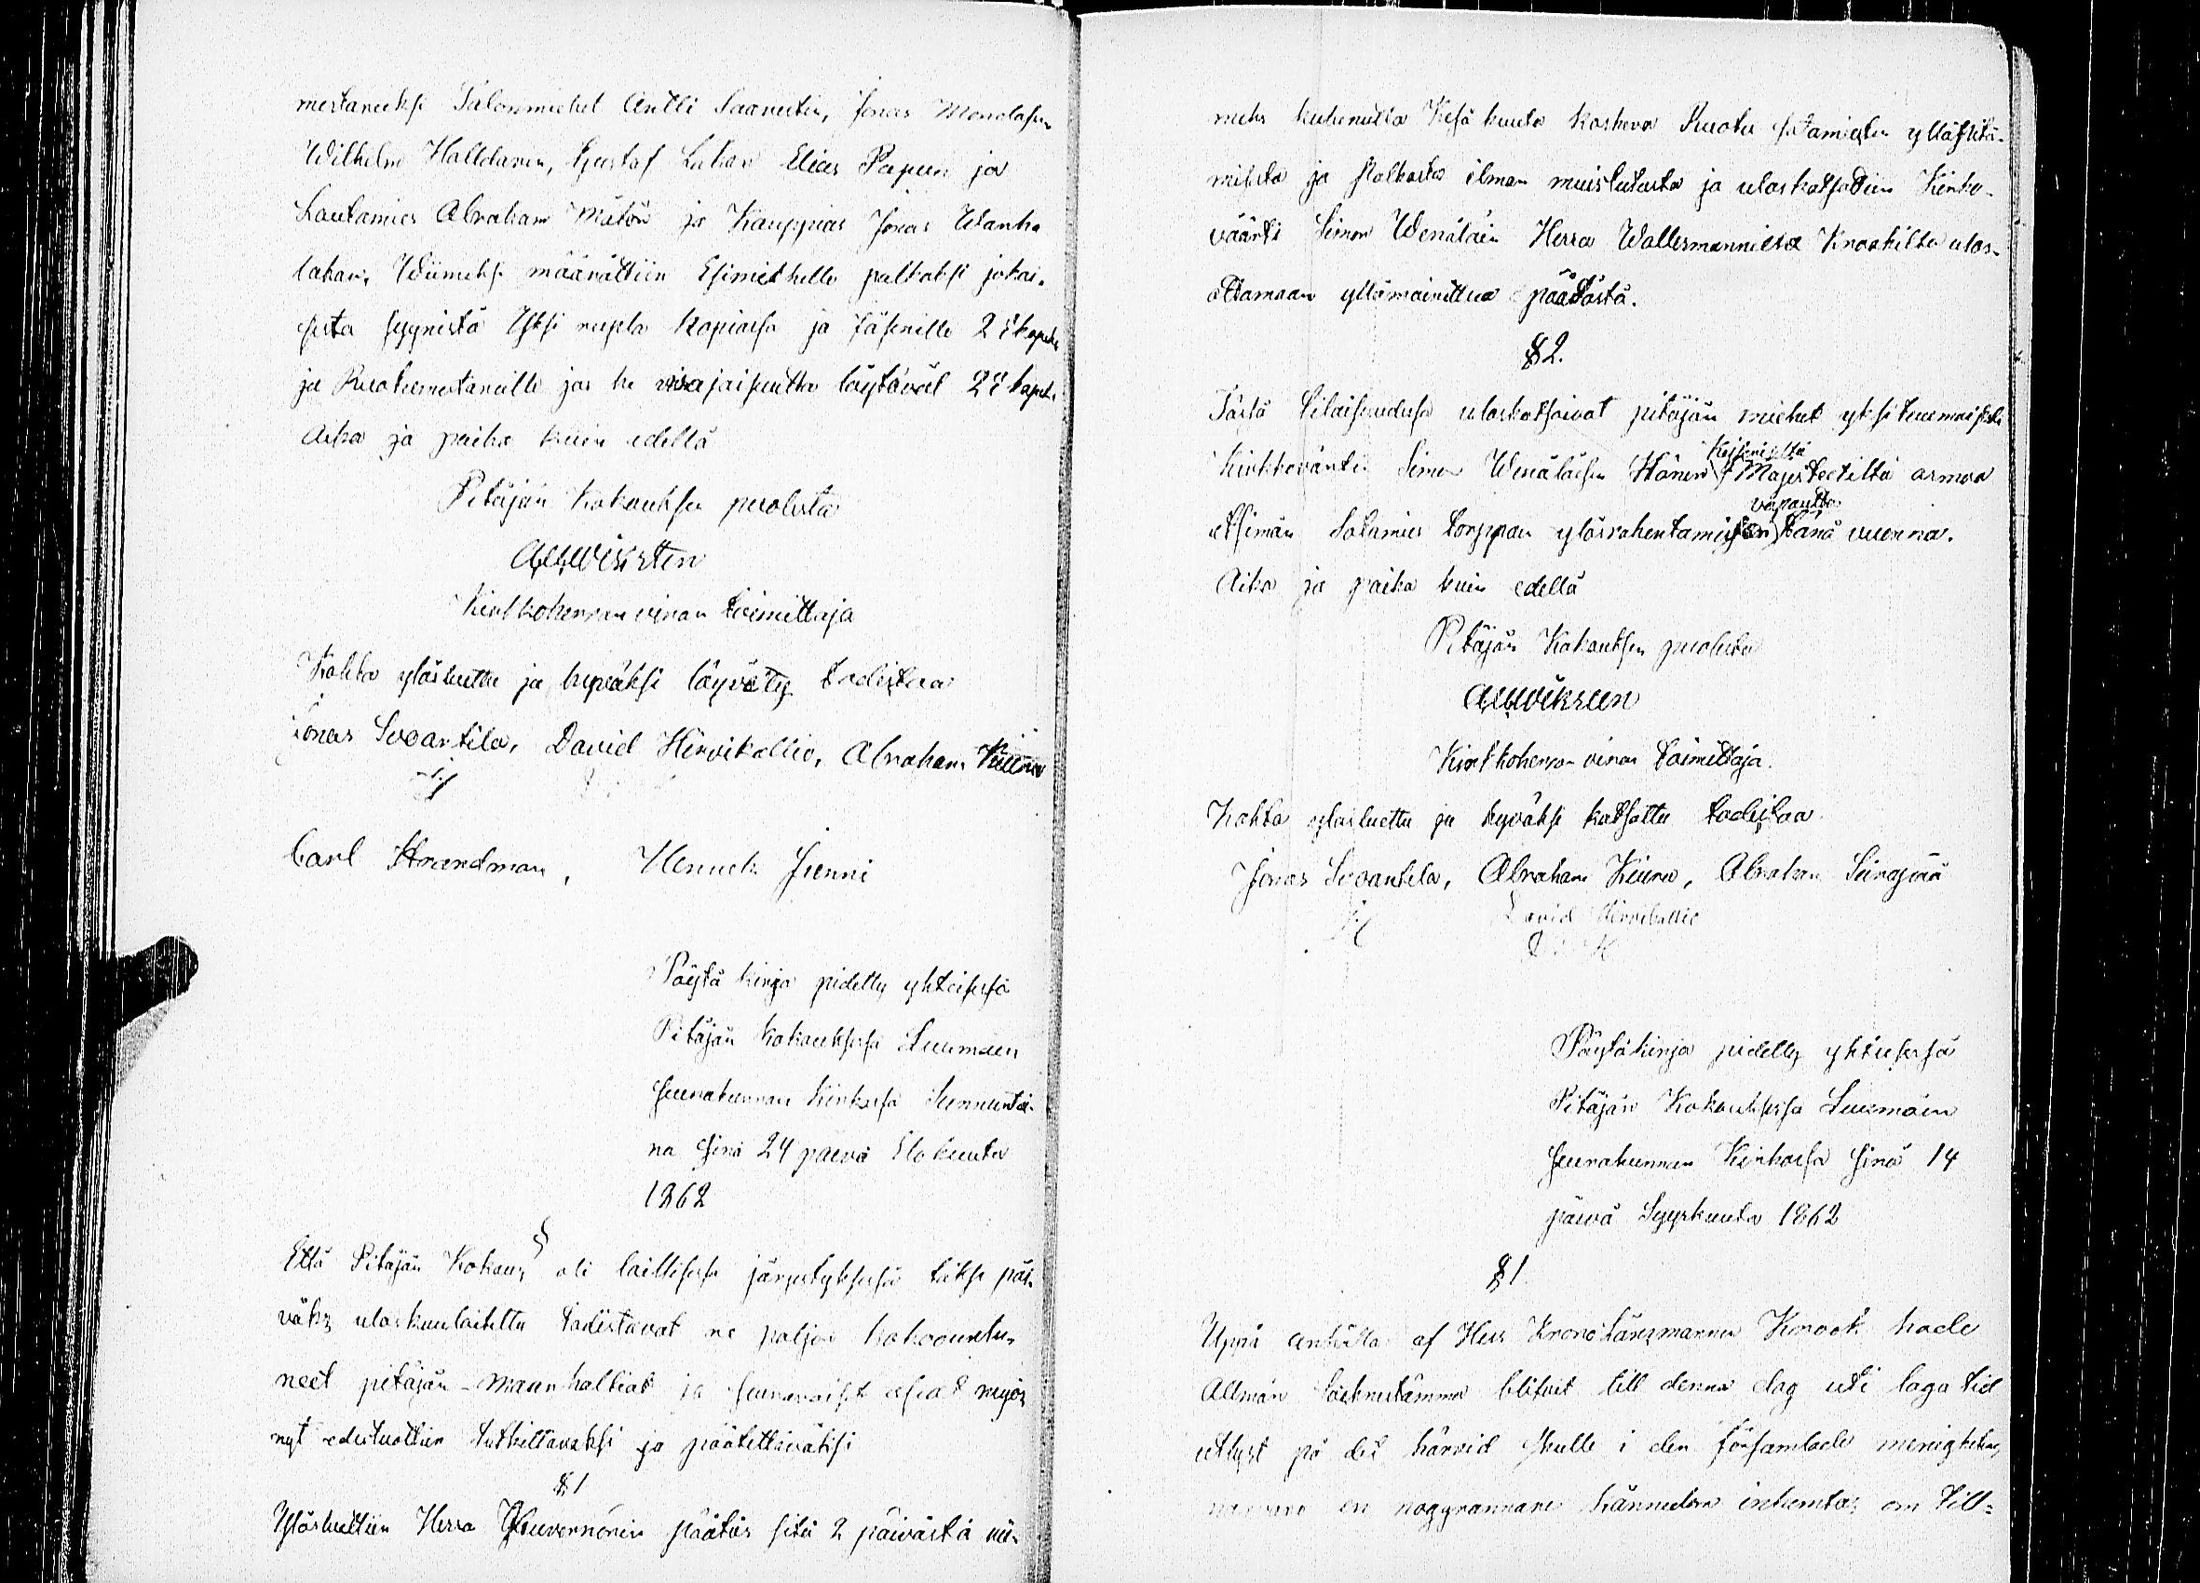 mestareiksi Talonmiehet Antti Saareten, Jonas Monolasen
Wilhelm Halldaren, Gustaf Lukar Elias Papun ja
Lautamies Abraham Mätön ja Kauppias Jonas Wanha
lakan, Wiimeksi määrättiin Esimiehelle palkaksi jokai-
sesta syynistä Yksi rupla kopiaisa ja Jäsenille 25 kopek
ja Ruokumestareille jos he vaajaisuutta löytävät 25 kopek.
Aika ja paika kuin edellä
Pitäjän Kokouksen puolesta
A W Wikstén
Kirkkoherran viran toimittaja
Kohta ylösluettu ja hyväksi löyvätty todistaa
Jonas Swartila, David Hirvikallio, Abraham Kiuru
Carl Strandman, Henrick Jienni
Pöytäkirja pidetty yhteisesä
Pitäjän kokouksesa Luumäen
seurakunnan Kirkosa Sunnunta-
na sinä 24 päivä Elokuuta
1862
§
Että Pitäjän Kokous oli laillisesa järjestyksesä täksi päi-
väks uloskuulutettu todistavat ne paljon kokoontu-
neet pitäjän-maanhaltiat ja seuravaiset asiat myös
nyt edestuottiin tutkittavaksi ja päätettäväksi
§ 1
Ylösluettiin Herra Guvernörin päätös siitä 2 päivästä vii-
meks kulunutta Kesä kuuta koskeva Ruotu sotamiesten ylläpitä-
mistä ja palkasta ilman muistutusta ja uloskatsottiin Kirko-
väärti Simon Wenäläin Herra Wallesmannilta Knookilta ulos-
ottamaan yllämainittua päätöstä.
§ 2.
Tästä tilaisuudesa uloskatsoivat pitäjän miehet yksi tuumaisesti
Kirkkovärtin Simon Wenäläisen Hänen Keisariseltä Majesteetiltä armoa
etsimän Sotamies torppain ylösrakentamisen vapautta tänä vuonna.
Aika ja paika kuin edellä
Pitäjän Kokouksen puolesta
A W Wikstén
Kirkkoherran viran toimittaja.
Kohta ylösluettu ja hyväksi katsottu todistaa
Jonas Swantila, Abraham Kiuru, Abraham Siirapää
David Hirvikallio
Pöytäkirja pidetty yhteisesä
Pitäjän Kokouksesa Luumäen
seurakunnan Kirkosa sinä 14
päivä Syyskuuta 1862
§ 1.
Uppå anhållan af Herr Kronolänsmannen Knook hade
Allmän Sockenstämma blifvit till denna dag uti laga tid
utlyst på det härvid skulle i den församlade menighetens
närvaro en noggrannare kännedom inhemtas om till-